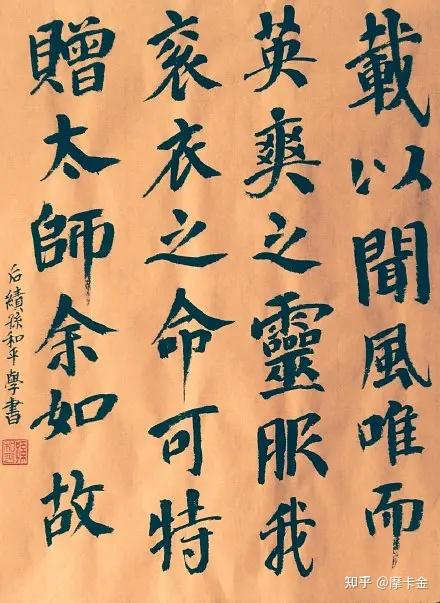 載以聞風唯而
英爽之靈服我
袞衣之命可特
贈太師余如故
后績孫和平學書
知乎 @摩卡金